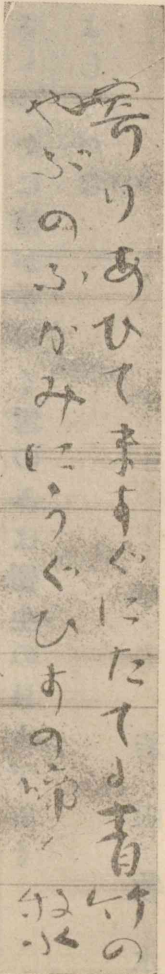 寄りあひてますぐにたてる青竹の
やぶのふかみにうぐひすの啼く
牧水